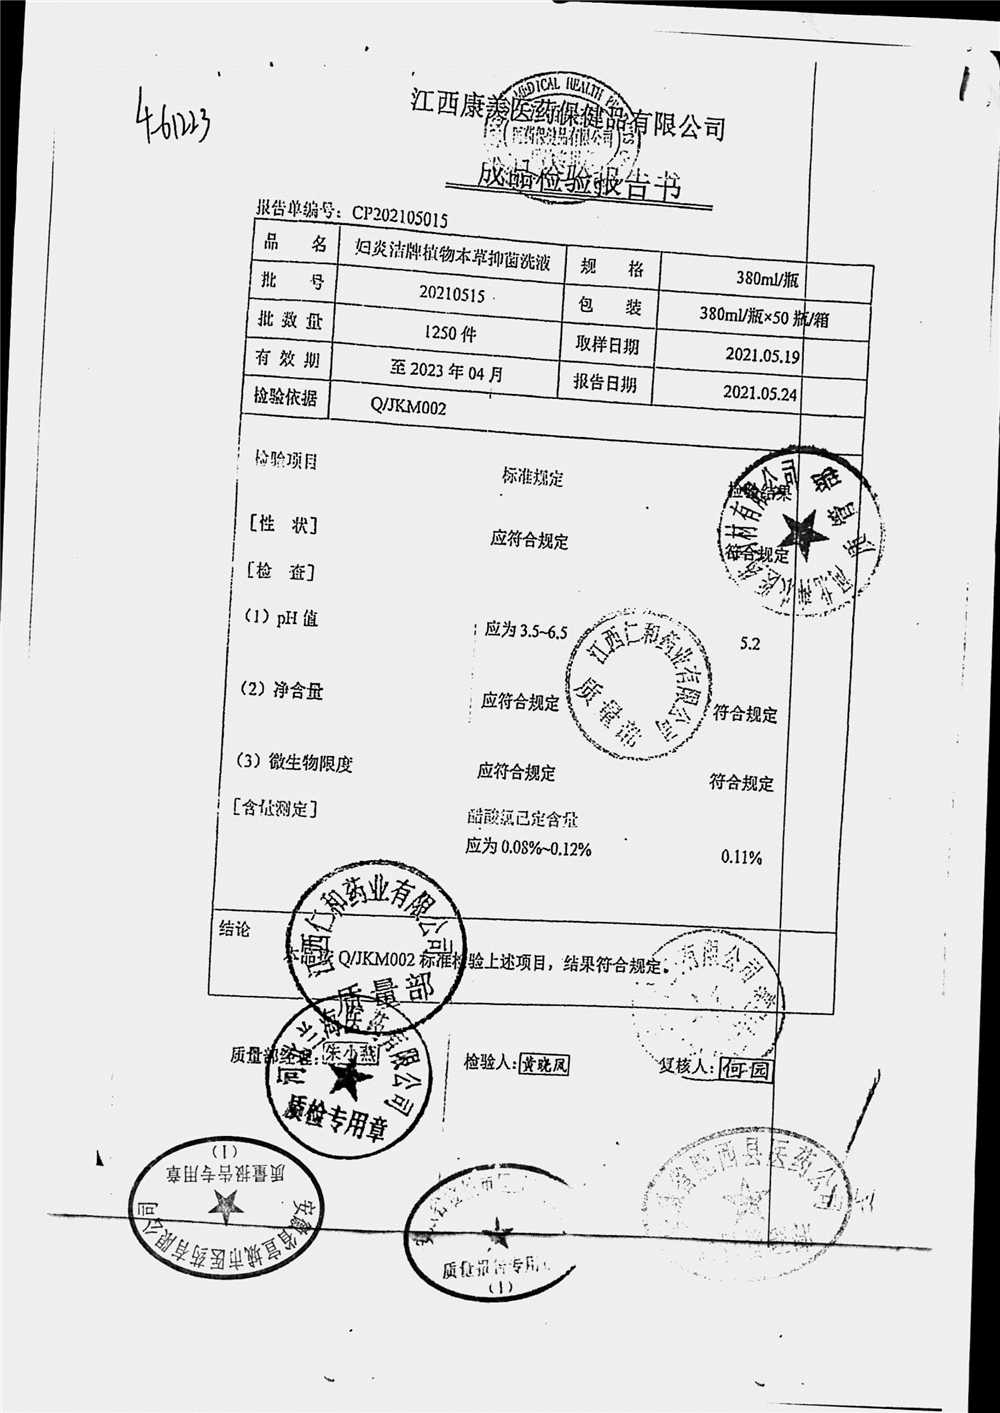 461223
江西康美医药保健品有限公司
成品检验报告书
报告单编号：CP202105015
品 名 妇炎洁牌植物本草抑菌洗液 规 格 380ml/瓶
批 号 20210515 包 装 380ml/瓶×50 瓶/箱
批 数 量 1250 件 取样日期 2021.05.19
有 效 期 至 2023 年 04 月 报告日期 2021.05.24
检验依据 Q/JKM002
检验项目 标准规定 检验结果
[性 状] 应符合规定 符合规定
[检 查]
(1) pH 值 应为 3.5~6.5 5.2
(2) 净含量 应符合规定 符合规定
(3) 微生物限度 应符合规定 符合规定
[含量测定] 醋酸氯己定含量
应为 0.08%~0.12% 0.11%
结论
本品按 Q/JKM002 标准检验上述项目，结果符合规定。
质量部经理：朱小燕 检验人：黄晓凤 复核人：何园
江西仁和药业有限公司
质量部
江西仁和药业有限公司
质量部
医药有限公司
质检专用章
安徽省宣城市医药有限公司
质量报告专用章
(1)
(1)
肥西县医药公司